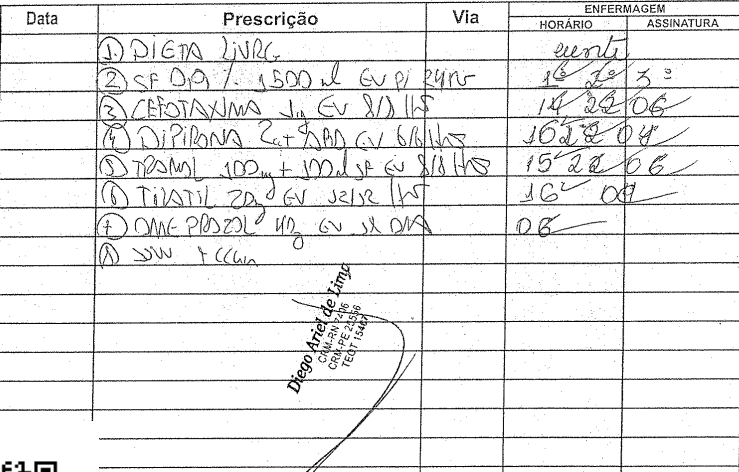 Data Prescrição Via ENFERMAGEM
HORÁRIO ASSINATURA
1 DIETA LIVRE ciente
2 SF 0,9% 1500 ml EV P/ 24HS 1º 2º 3º
3 CEFOTAXIMA 1g EV 8/8 HS 14 22 06
4 DIPIRONA 2ml + ABD EV 6/6 HS 16 22 04
5 TRAMAL 100mg + 100ml SF EV 8/8 HS 15 22 06
6 TILATIL 20mg EV 12/12 HS 16 04
7 OMEPRAZOL 40mg EV 1X DIA 06
8 SSVV + CCGG
Diego Ariel de Lima
CRM-RN
CRM-PE
TEOT